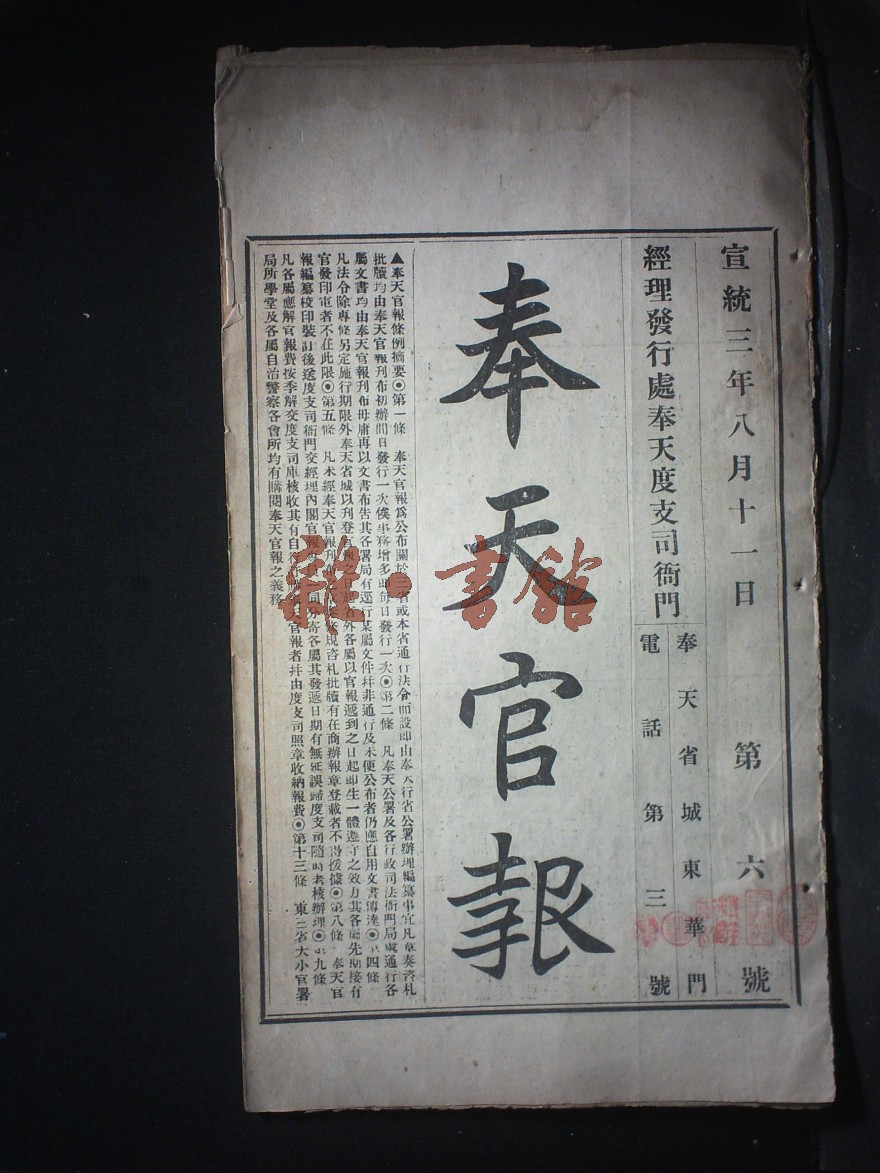 宣統三年八月十一日 第六號
經理發行處奉天度支司衙門
奉天省城東華門
電話第三號
奉天官報
▲奉天官報條例摘要◉第一條 奉天官報爲公布關於三省或本省通行法令而設即由奉天行省公署辦理編纂事宜凡章奏咨札
批牘均由奉天官報刊布初辦間日發行一次俟事務增多即每日發行一次◉第二條 凡奉天公署及各行政司法衙門局處通行各
屬文書均由奉天官報刊布毋庸再以文書布告其各署局有逕行某屬文件幷非通行及未便公布者仍應自用文書傳達◉第四條
凡法令除專條另定施行期限外奉天省城以刊登官報之日起省外各屬以官報遞到之日起即生一體遵守之效力其各屬先期接有
官發印電者不在此限◉第五條 凡未經奉天官報刊布之章規咨札批牘有在商辦報章登載者不得援據◉第八條 奉天官
報編纂校印裝訂後送度支司衙門交經理內閣官報分寄各屬其發遞日期有無延誤歸度支司隨時考核辦理◉第九條
凡各屬應解官報費按季解交度支司庫核收其有自行天官報者幷由度支司照章收納報費◉第十三條 東三省大小官署
局所學堂及各屬自治警察各會所均有購閱奉天官報之義務
雜·書館